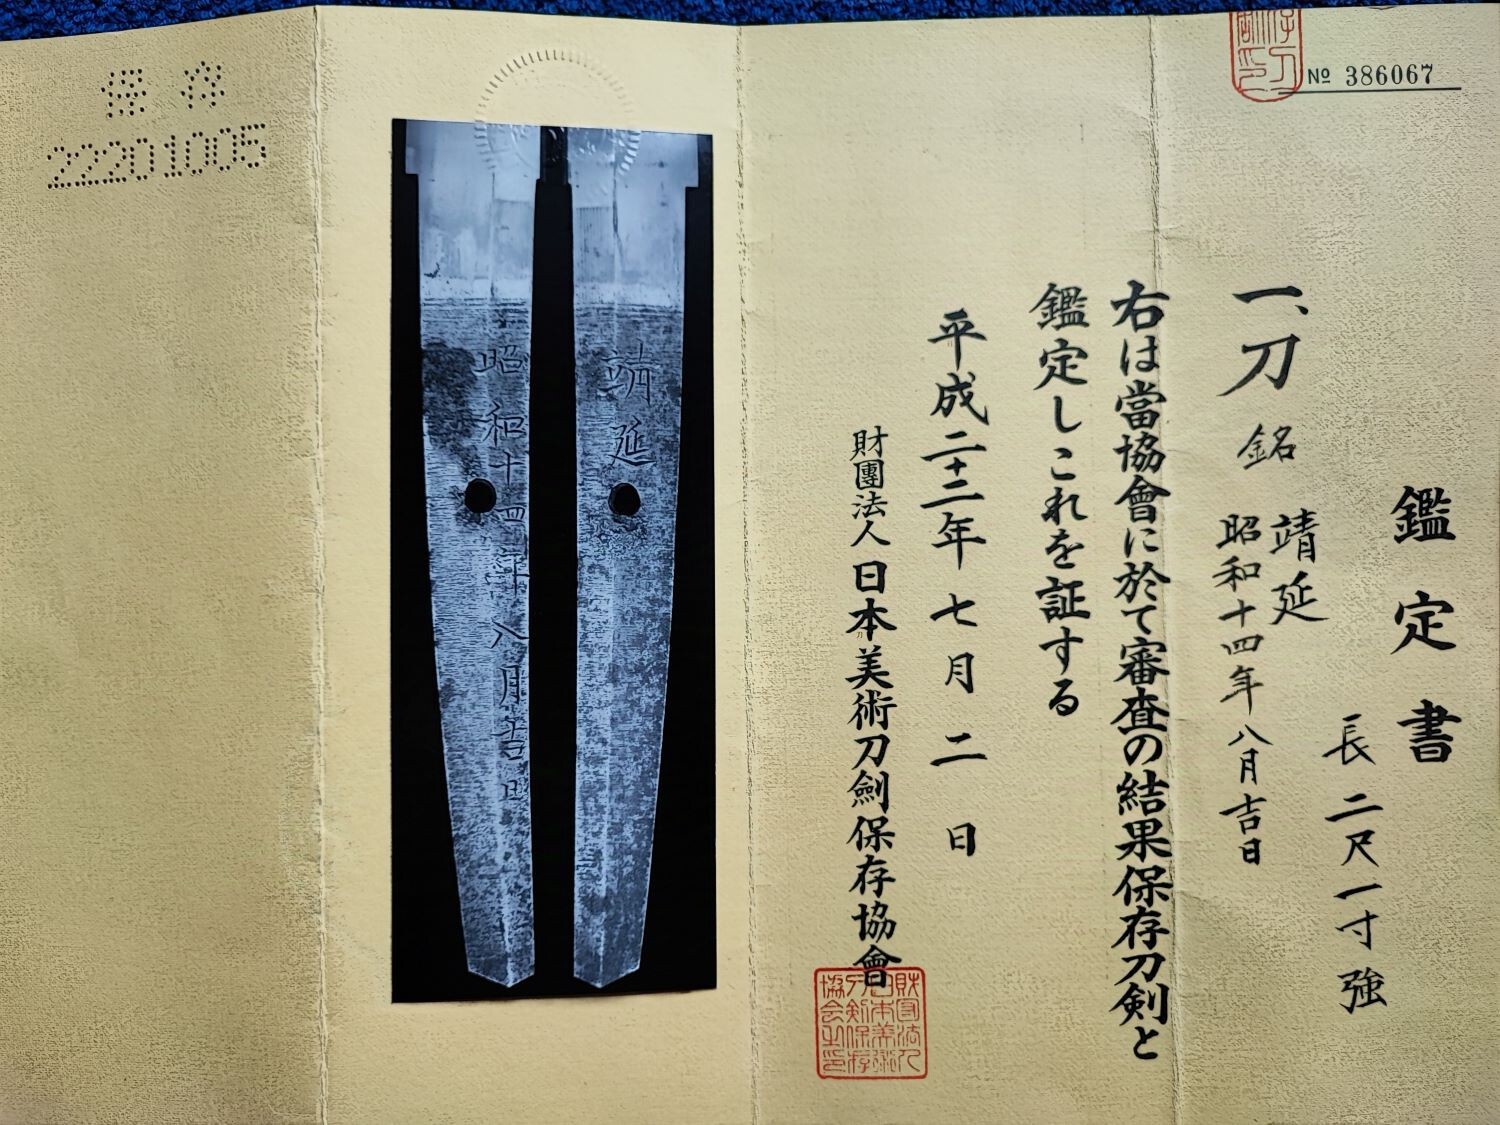 No 386067
鑑定書
長 二尺一寸強
一、刀 銘 靖延
昭和十四年八月吉日
右は當協會に於て審査の結果保存刀剣と
鑑定しこれを証する
平成二十二年 七月 二日
財團法人日本美術刀劍保存協會
財団法人
日本美術
刀剣保存
協会之印
靖延
昭和十四年八月吉日
保存
22201005